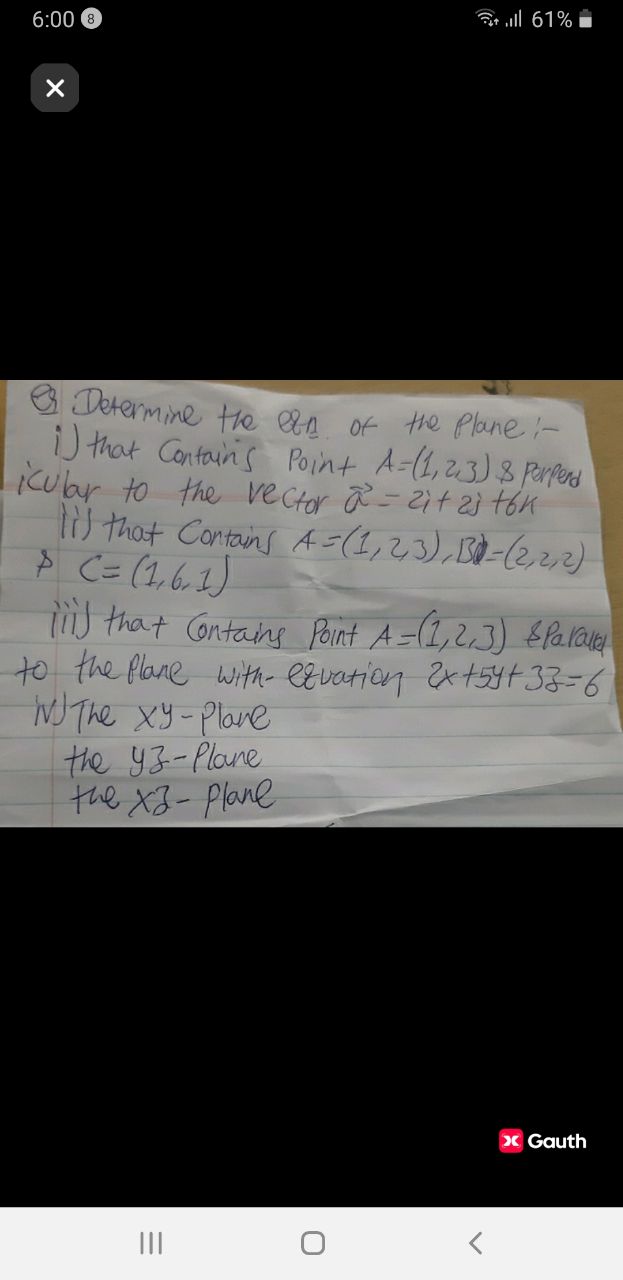 6:00 8 61%
Q Determine the eqn. of the Plane :-
i) that Contains Point A=(1,2,3) & Perpend
icular to the vector a⃗ = 2i+2j+6k
ii) that Contains A=(1,2,3), B=(2,2,2)
& C=(1,6,1)
iii) that Contains Point A=(1,2,3) & Parallel
to the Plane with- equation 2x+5y+3z=6
iv) The xy-Plane
the yz-Plane
the xz-Plane
Gauth